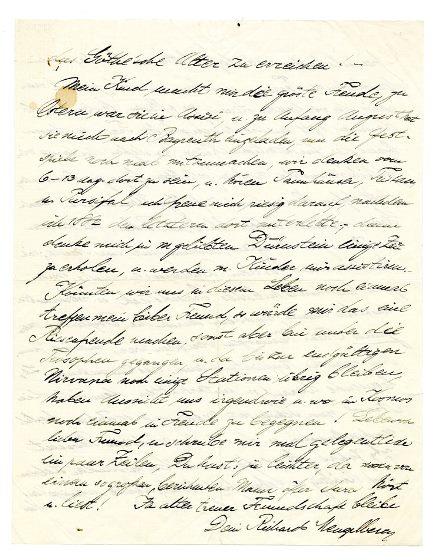 das Göthe'sche Alter zu erreichen! –
Mein Kind macht mir die größte Freude, zu
Ostern war sie in und zu Anfang August hat
sie mich nach Bayreuth eingeladen, um die Fest-
noch mal mitzumachen, wir denken vom
6–13 dort zu sein, u. hören Tannhäuser, Tristan
u. Parsifal, ich freue mich riesig darauf, nachdem
ich 1882 den letzteren dort miterlebte, dann
denke mich in m geliebten Dürnstein
zu erholen, u. werden m Kinder mir assistieren.
Könnten wir uns in diesem Leben noch einmal
treffen mein lieber Freund, so würde mir das eine
Riesenfreude machen, sonst aber wir unter die
gegangen u. da bis zur endgültigen
Nirwana noch einige Stationen übrig bleiben,
haben uns irgendwie u. wo im Kosmos
noch einmal in Freude zu begegnen! Lebewohl
lieber Freund, u. schreibe mir mal gelegentlich
ein paar Zeilen, Du hast's ja leichter, da man von
einem so großen, berühmten Mann öfter hört
u. liest! In alter treuer Freundschaft bleibe
Dein Richard Mengelberg